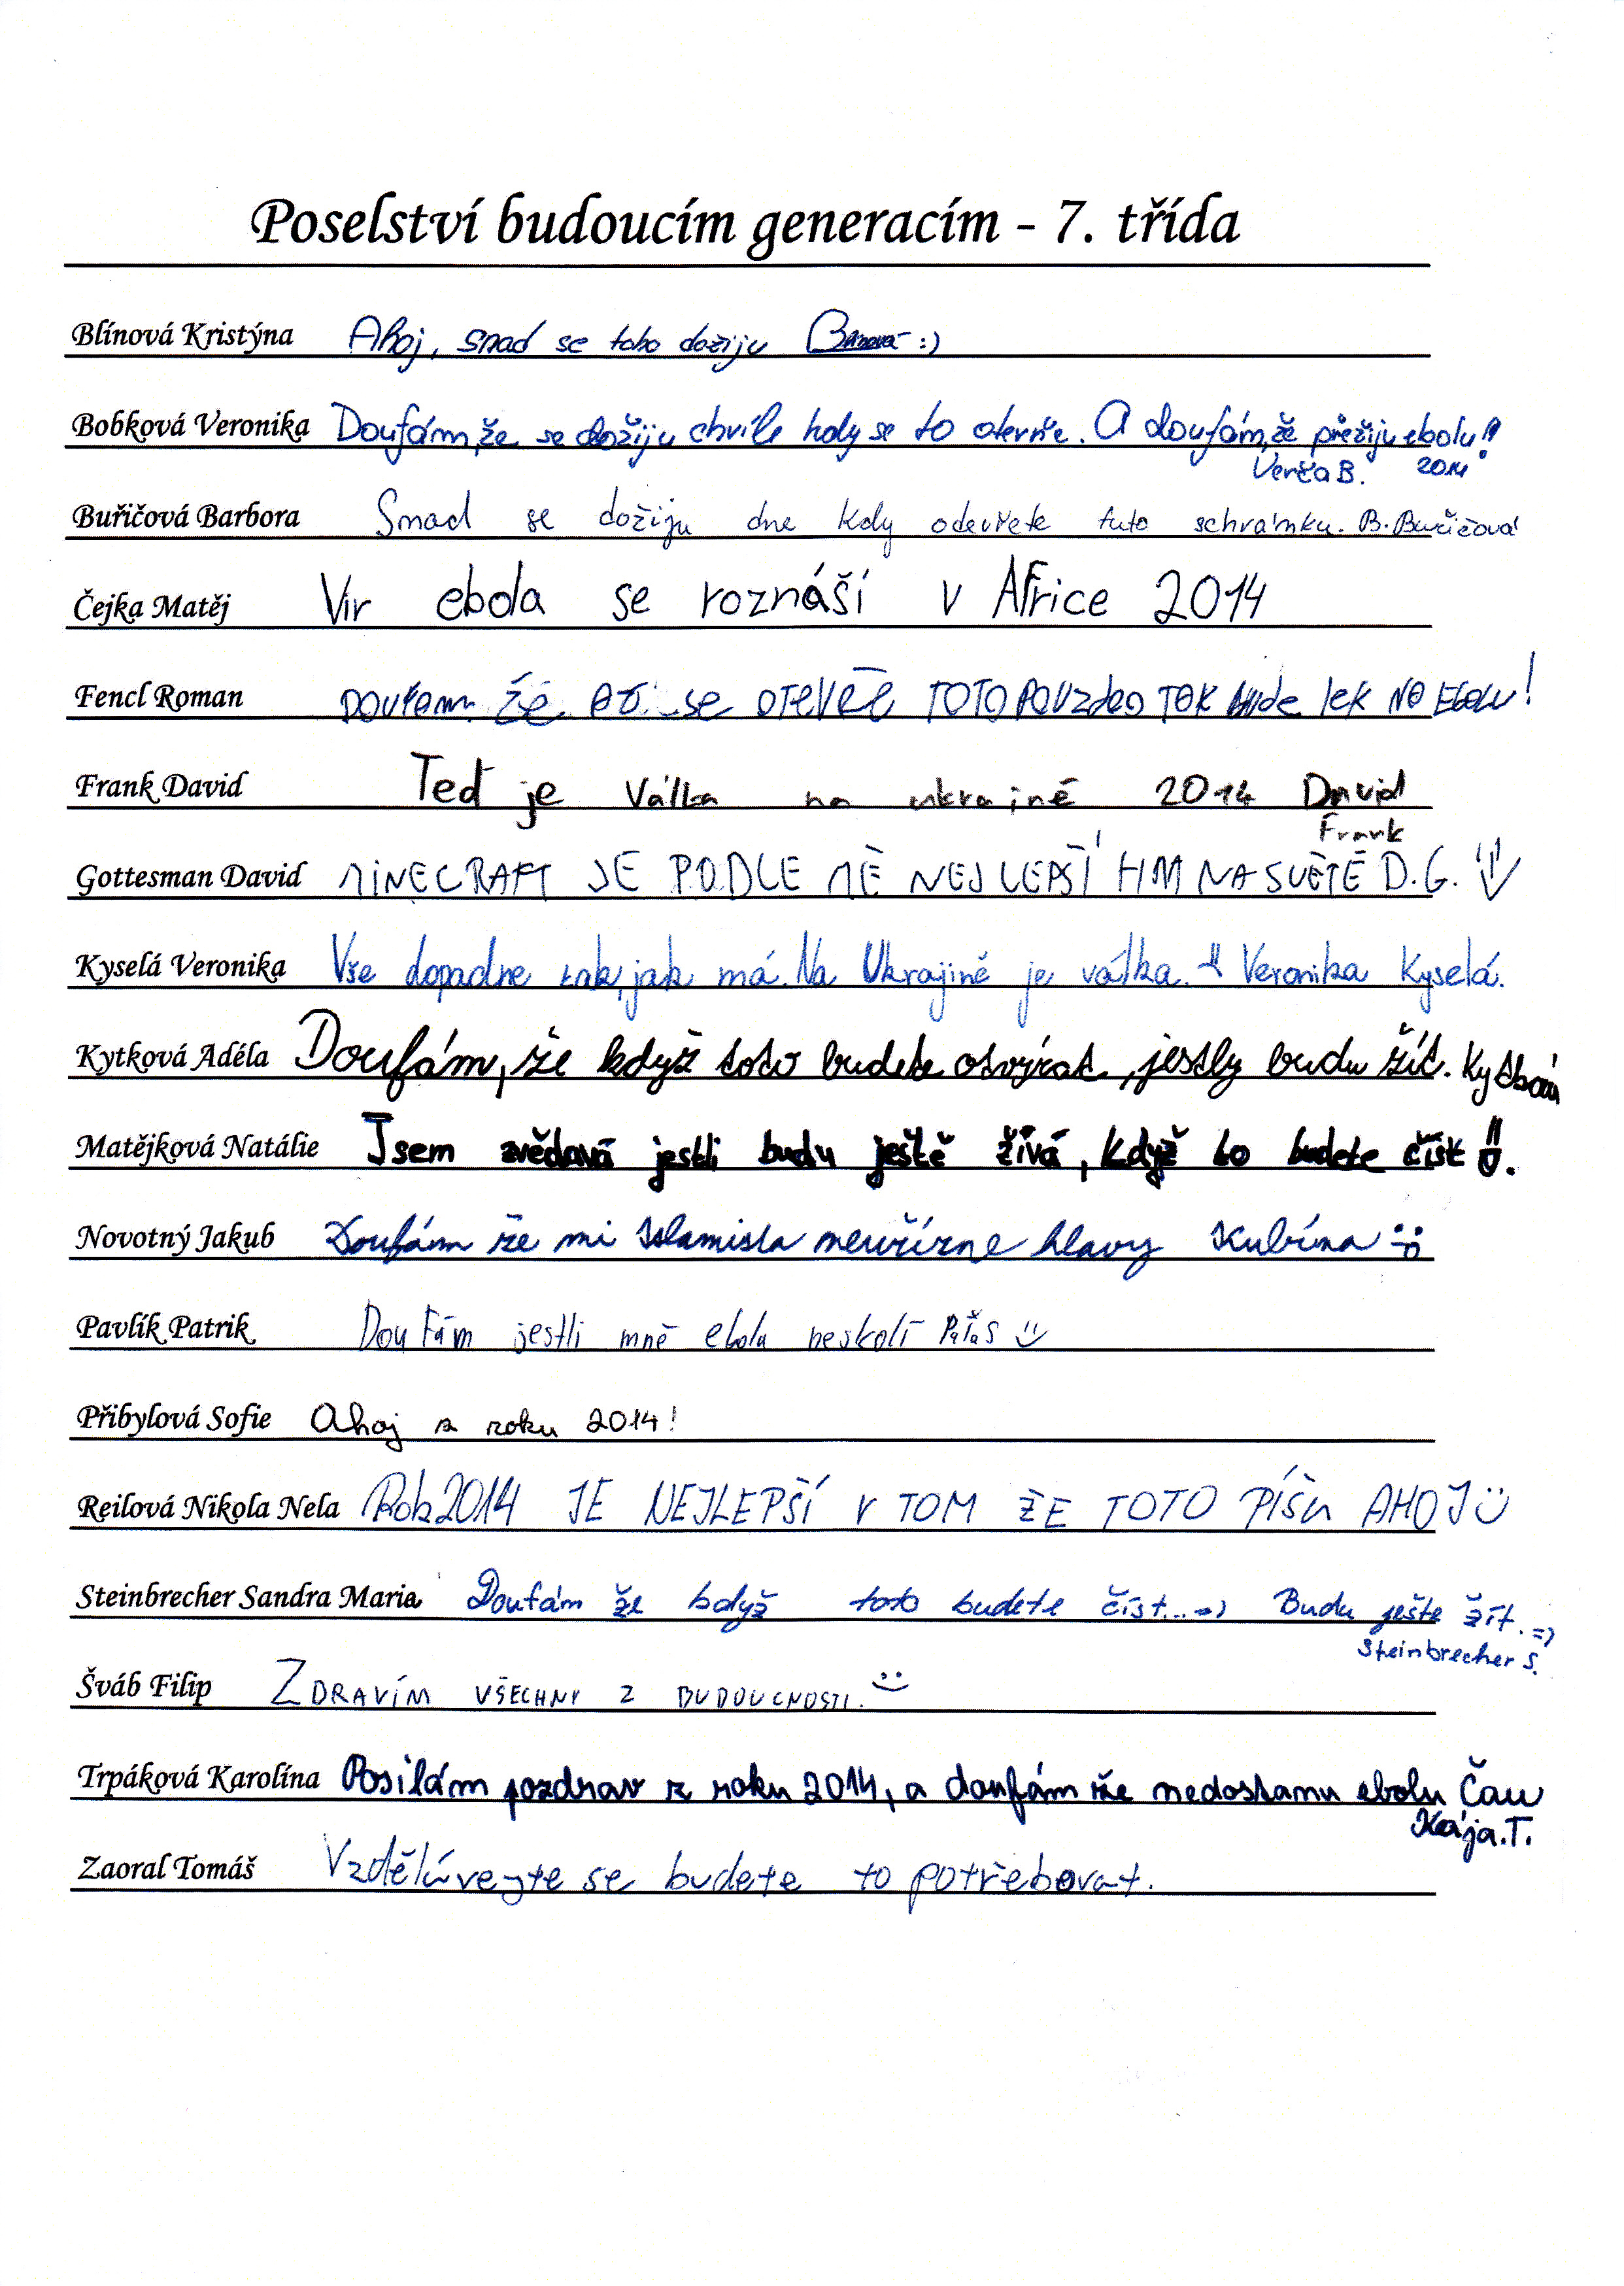 Poselství budoucím generacím - 7. třída
Blínová Kristýna Ahoj, snad se toho dožiju Blínová :)
Bobková Veronika Doufám, že se dožiju chvíle kdy se to otevře. A doufám, že přežiju ebolu!!
Verča B. 2014
Buřičová Barbora Snad se dožiju dne kdy odevřete tuto schránku. B. Buřičová
Čejka Matěj Vir ebola se roznáší v Africe 2014
Fencl Roman DOUFAM ŽE AŽ SE OTEVŘE TOTO POUZDRO TAK bude lek NA EBOLU!
Frank David Teď je válka na ukrajině 2014 David
Frank
Gottesman David MINECRAFT JE PODLE MĚ NEJLEPŠÍ HM NA SVĚTĚ D.G.
Kyselá Veronika Vše dopadne tak, jak má. Na Ukrajině je válka. Veronika Kyselá.
Kytková Adéla Doufám, že když toto budete otvírat, jestly budu žít. Kytková
Matějková Natálie Jsem zvědavá jestli budu ještě živá, když to budete číst.
Novotný Jakub Doufám že mi Islamista neuřízne hlavy Kubína
Pavlík Patrik Doufám jestli mně ebola neskolí Paťas
Přibylová Sofie Ahoj z roku 2014!
Reilová Nikola Nela Rok 2014 JE NEJLEPŠÍ V TOM ŽE TOTO PÍŠU AHOJ
Steinbrecher Sandra Maria Doufám že když toto budete číst... =) Budu ještě žít. =)
Steinbrecher S.
Šváb Filip ZDRAVÍM VŠECHNY Z BUDOUCNOSTI.
Trpáková Karolína Posilám pozdrav z roku 2014, a doufám že nedostanu ebolu Čau
Kája.T.
Zaoral Tomáš Vzdělávejte se budete to potřebovat.